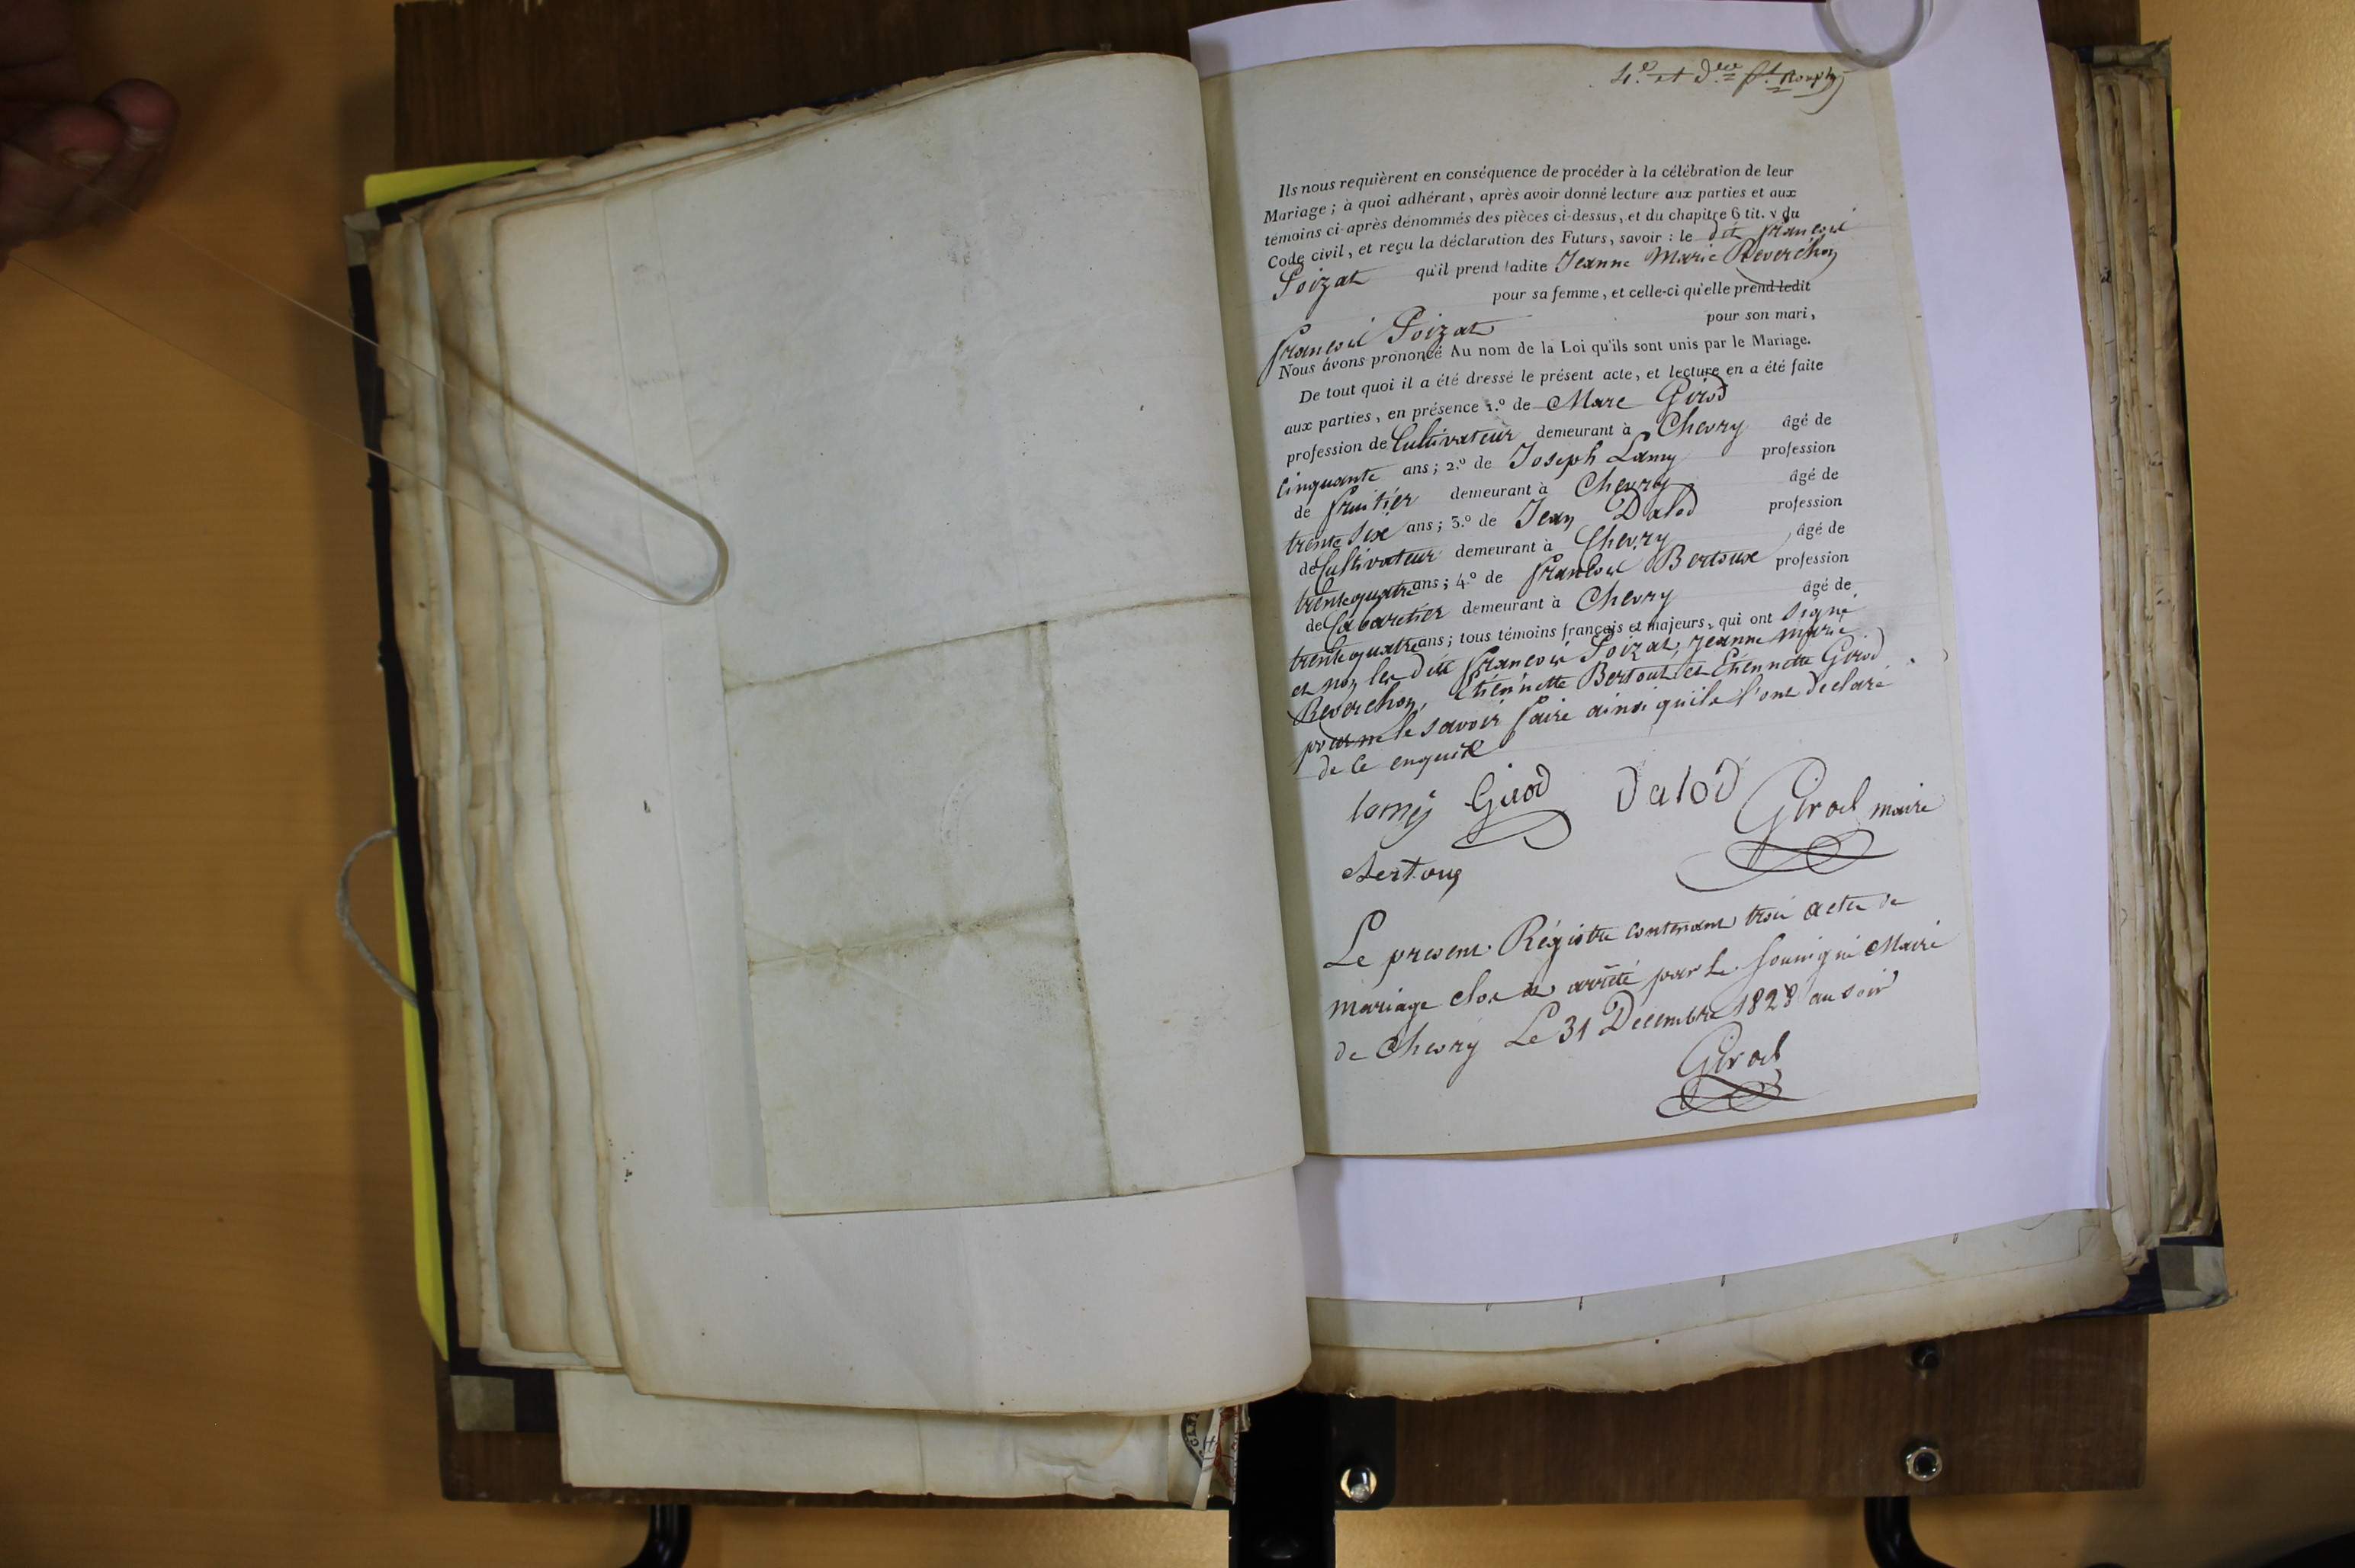 4.e et d.er f.t
Ils nous requièrent en conséquence de procéder à la célébration de leur
Mariage ; à quoi adhérant, après avoir donné lecture aux parties et aux
témoins ci-après dénommés des pièces ci-dessus, et du chapitre 6 tit. v du
Code civil, et reçu la déclaration des Futurs, savoir : le dit françois
Poizat qu'il prend ladite Jeanne Marie Reverchon
pour sa femme, et celle-ci qu'elle prend ledit
françois Poizat pour son mari,
Nous avons prononcé Au nom de la Loi qu'ils sont unis par le Mariage.
De tout quoi il a été dressé le présent acte, et lecture en a été faite
aux parties, en présence 1.o de Marc Girod
profession de Cultivateur demeurant à Chevry âgé de
Cinquante ans ; 2.o de Joseph Lamy profession
de fruitier demeurant à Chevry âgé de
trente six ans ; 3.o de Jean Dalod profession
de Cultivateur demeurant à Chevry âgé de
trente quatre ans ; 4.o de francois Bertoux profession
de Cabaretier demeurant à Chevry âgé de
trente quatre ans ; tous témoins français et majeurs, qui ont signé
et non les dits françois Poizat, jeanne marie
Reverchon, Etiennette Bertout et Etiennette Girod
pour ne le savoir faire ainsi qu'ils l'ont déclaré
de ce enquis
lamy Girod Dalod Girod maire
Bertoux
Le present Régistre contenant trois actes de
mariage clos et arrêté par Le Soussigné Maire
de Chevry Le 31 Decembre 1828 au soir
Girod